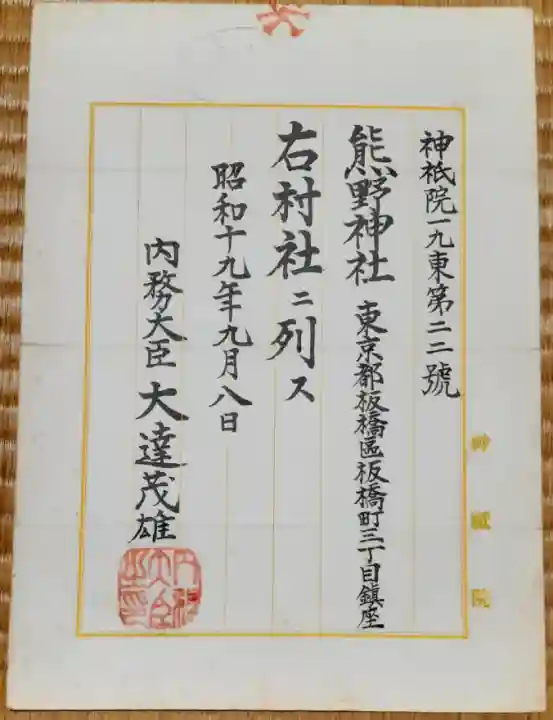 神祇院一九東第二二號
熊野神社 東京都板橋區板橋町三丁目鎮座
右村社ニ列ス
昭和十九年九月八日
内務大臣 大達茂雄
内務大臣之印
神祇院